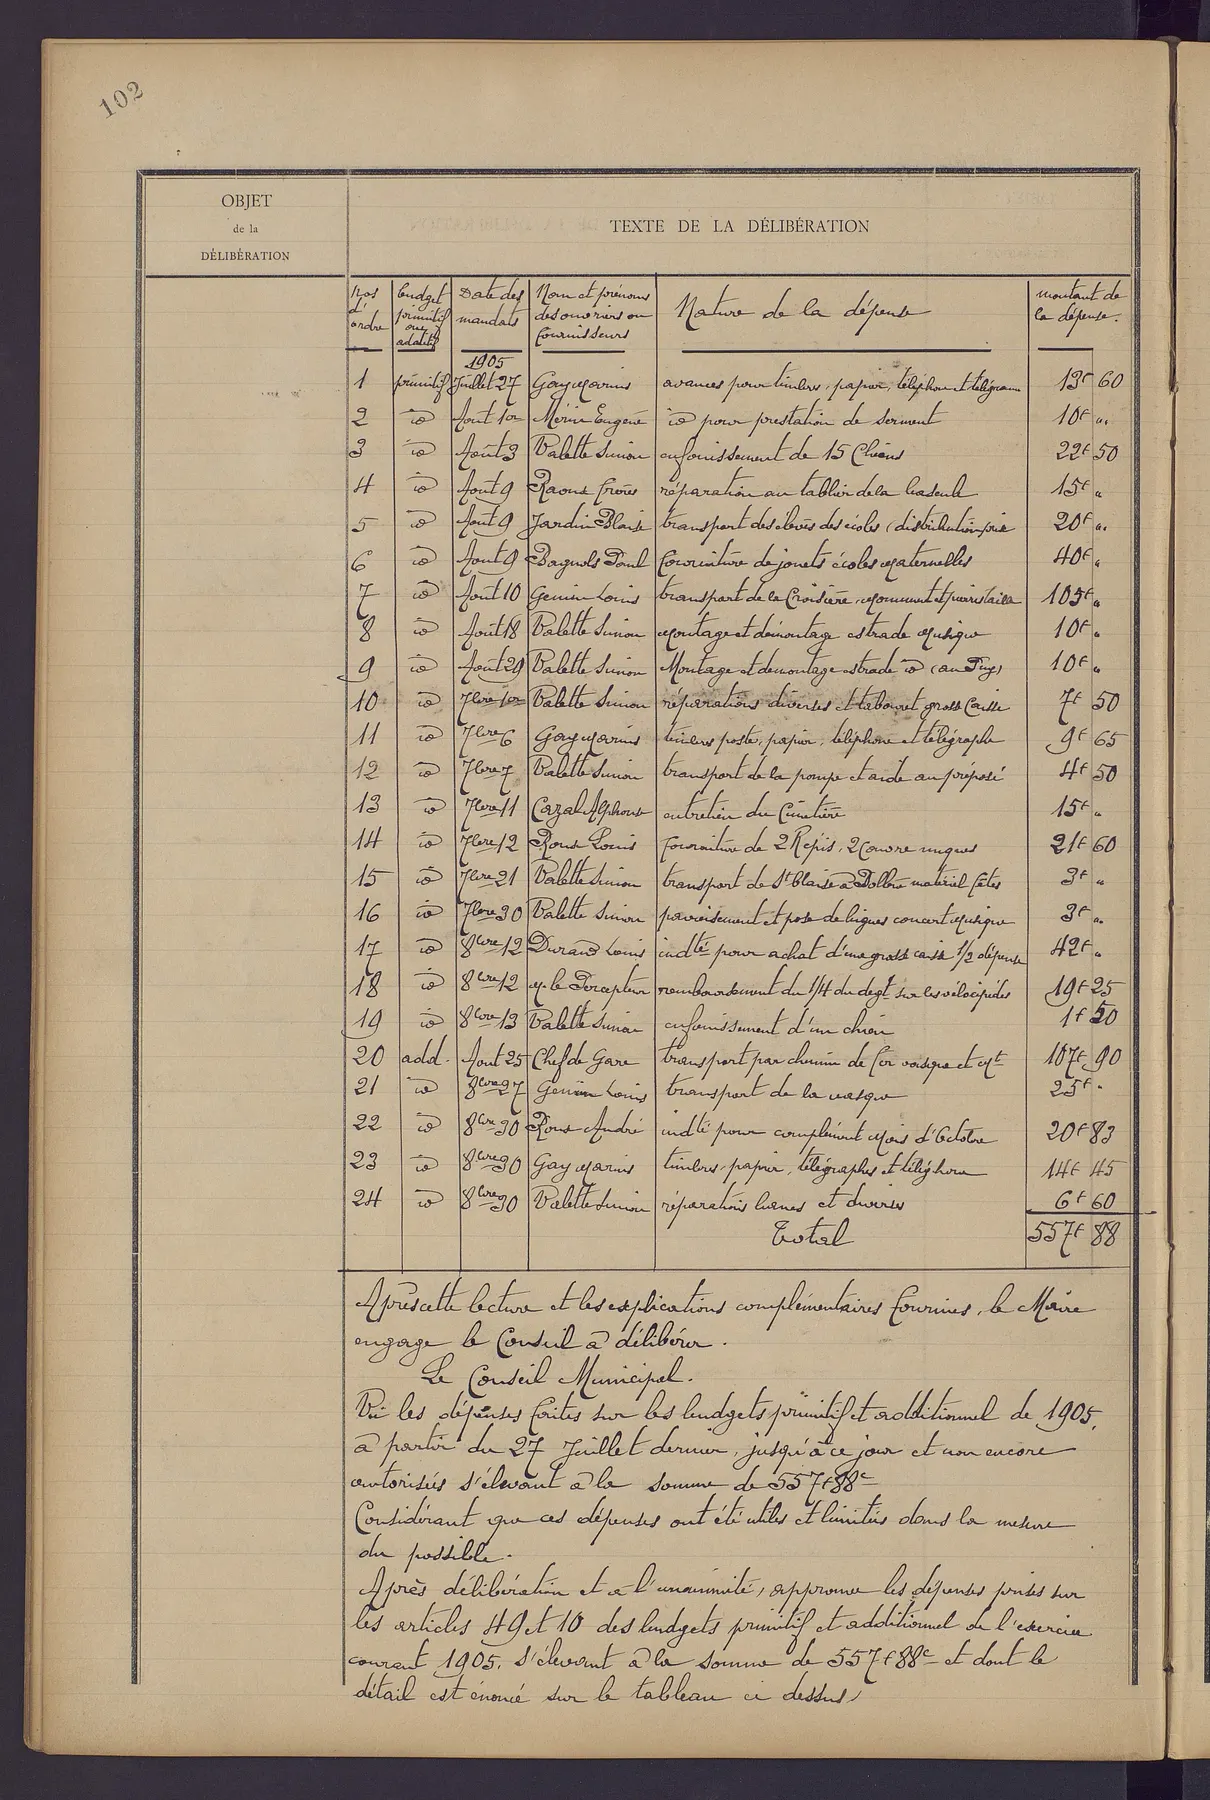 102
OBJET
de la
DÉLIBÉRATION
TEXTE DE LA DÉLIBÉRATION
Nos d'ordre | budget primitif ou aditif | Date des mandats | Nom et prénoms des ouvriers ou fournisseurs | Nature de la dépense | montant de la dépense.
1905
1 primitif Juillet 27 Gay Marius avances pour timbres, papier, téléphone et télégramme 13f 60
2 id Aout 1er Mérin Eugène id pour prestation de serment 10f "
3 id Août 3 Valette Simon enfouissement de 15 Chiens 22f 50
4 id Août 9 Raoux frères réparation au tablier de la bascule 15f "
5 id Août 9 Jardin Blaise transport des élèves des écoles (distribution prix 20f "
6 id Aout 9 Bagnols Paul fourniture de jouets écoles Maternelles 40f "
7 id Aout 10 Genin Louis transport de la Croisière, Monument et pierres taille 105f "
8 id Août 18 Valette Simon Montage et démontage estrade Musique 10f "
9 id Août 29 Valette Simon Montage et demontage estrade id (au Puy) 10f "
10 id 7bre 1er Valette Simon réparations diverses et tabouret grosse Caisse 7f 50
11 id 7bre 6 Gay Marius timbres poste, papier, téléphone et télégraphe 9f 65
12 id 7bre 7 Valette Simon transport de la pompe et aide au préposé 4f 50
13 id 7bre 11 Cazal Alphonse entretien du Cimetière 15f "
14 id 7bre 12 Roux Louis Fourniture de 2 Képis, 2 Couvre nuques 21f 60
15 id 7bre 21 Valette Simon transport de St Blaise à Bollène matériel fêtes 3f "
16 id 7bre 30 Valette Simon pavoisement et pose de lignes concert Musique 3f "
17 id 8bre 12 Durand Louis indté pour achat d'une grosse caisse 1/2 dépense 42f "
18 id 8bre 12 M. le Percepteur remboursement du 1/4 du degt sur les vélocipèdes 19f 25
19 id 8bre 13 Valette Simon enfouissement d'un chien 1f 50
20 add. Aout 25 Chef de Gare transport par chemin de fer vasque et Mt 107f 90
21 id 8bre 27 Genin Louis transport de la vasque 25f "
22 id 8bre 30 Roux André indté pour complément Mois d'Octobre 20f 83
23 id 8bre 30 Gay Marius timbres, papier, télégraphes et téléphone 14f 45
24 id 8bre 30 Valette Simon réparations bancs et diverses 6f 60
Total 557f 88
Après cette lecture et les explications complémentaires fournies, le Maire
engage le Conseil à délibérer.
Le Conseil Municipal.
Vu les dépenses faites sur les budgets primitif et additionnel de 1905,
à partir du 27 Juillet dernier, jusqu'à ce jour et non encore
autorisées s'élevant à la somme de 557f 88c
Considérant que ces dépenses ont été utiles et limitées dans la mesure
du possible.
Après délibération et à l'unanimité, approuve les dépenses prises sur
les articles 49 et 10 des budgets primitif et additionnel de l'exercice
courant 1905, s'élevant à la somme de 557f 88c et dont le
détail est énoncé sur le tableau ci dessus,